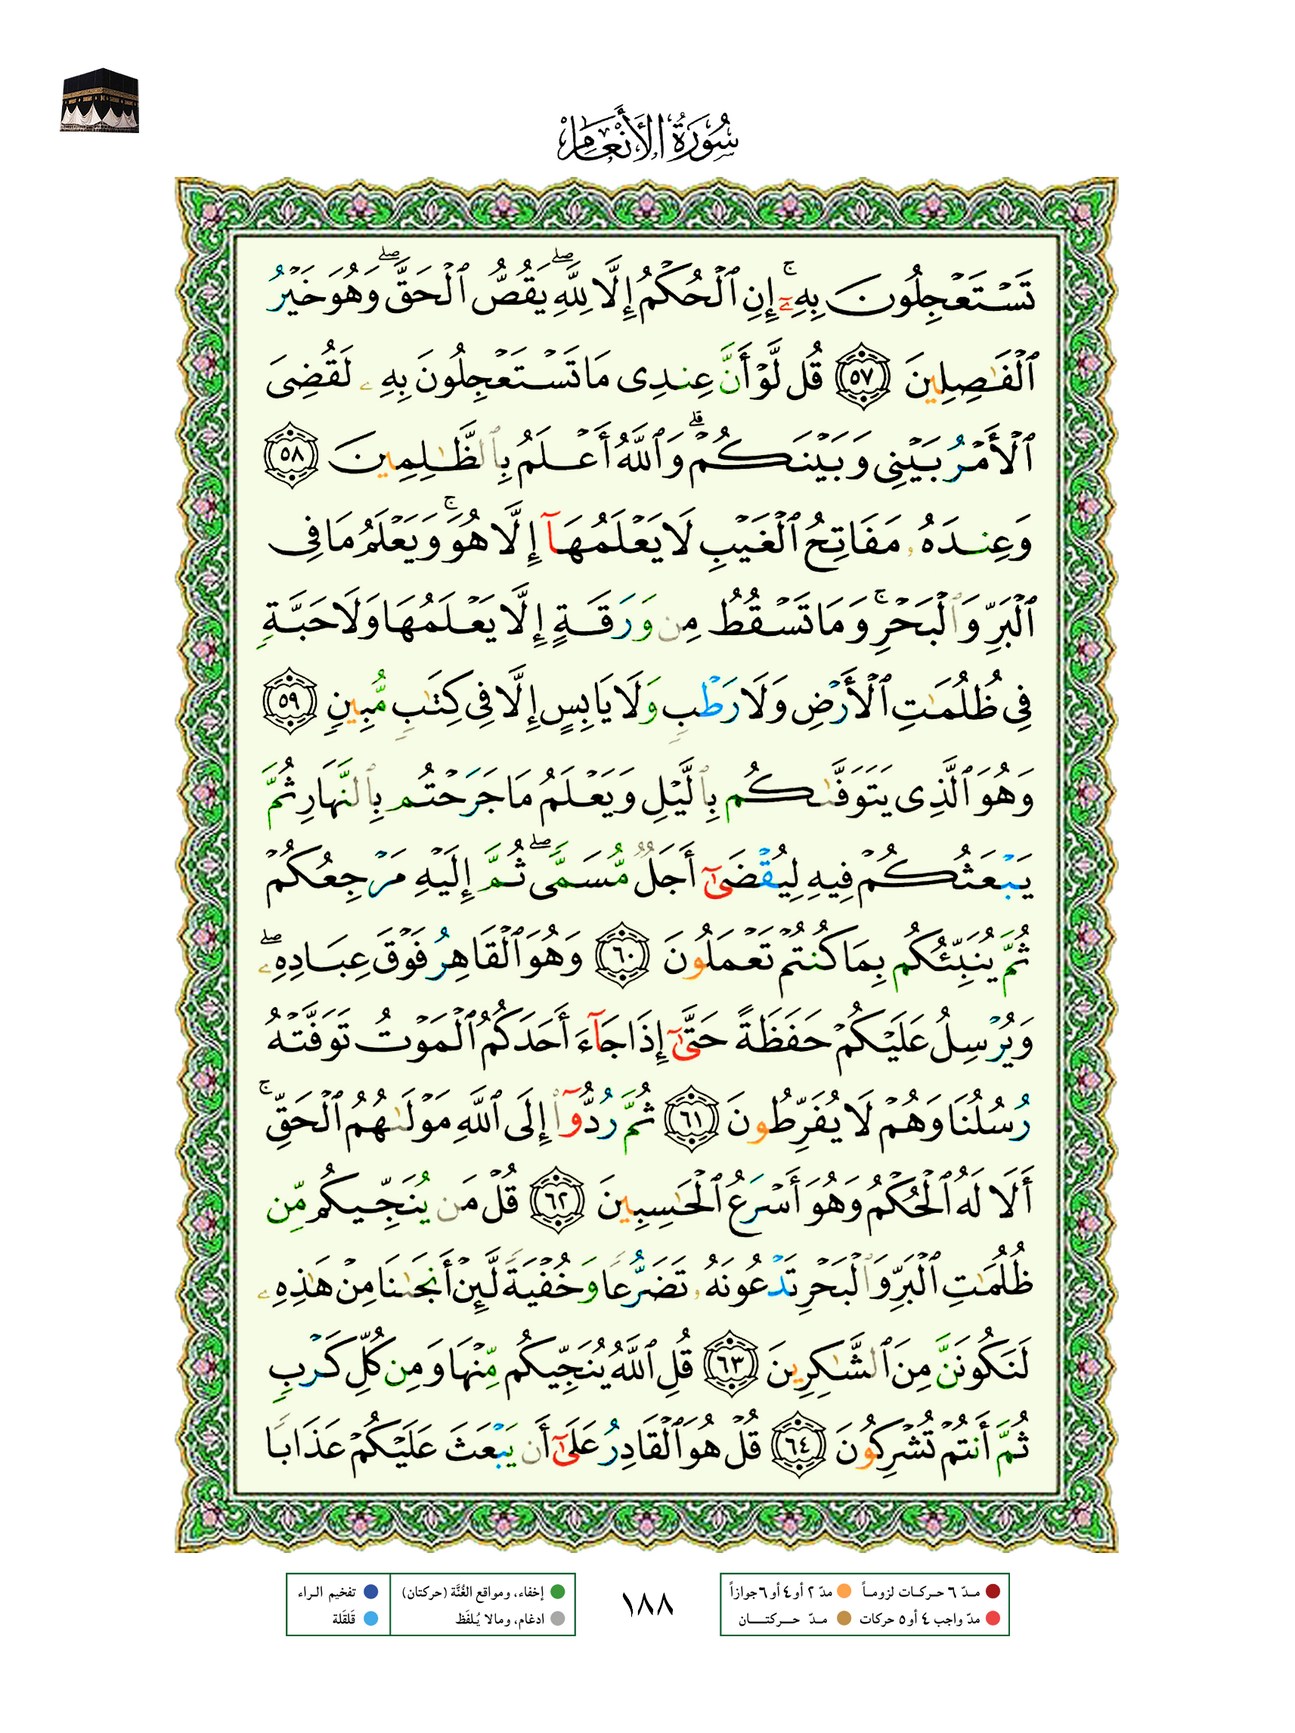 سُورَةُ الأَنْعَامِ
تَسْتَعْجِلُونَ بِهِۦٓ ۚ إِنِ ٱلْحُكْمُ إِلَّا لِلَّهِ ۖ يَقُصُّ ٱلْحَقَّ ۖ وَهُوَ خَيْرُ
ٱلْفَٰصِلِينَ ٥٧ قُل لَّوْ أَنَّ عِندِى مَا تَسْتَعْجِلُونَ بِهِۦ لَقُضِىَ
ٱلْأَمْرُ بَيْنِى وَبَيْنَكُمْ ۗ وَٱللَّهُ أَعْلَمُ بِٱلظَّٰلِمِينَ ٥٨
وَعِندَهُۥ مَفَاتِحُ ٱلْغَيْبِ لَا يَعْلَمُهَآ إِلَّا هُوَ ۚ وَيَعْلَمُ مَا فِى
ٱلْبَرِّ وَٱلْبَحْرِ ۚ وَمَا تَسْقُطُ مِن وَرَقَةٍ إِلَّا يَعْلَمُهَا وَلَا حَبَّةٍ
فِى ظُلُمَٰتِ ٱلْأَرْضِ وَلَا رَطْبٍ وَلَا يَابِسٍ إِلَّا فِى كِتَٰبٍ مُّبِينٍ ٥٩
وَهُوَ ٱلَّذِى يَتَوَفَّىٰكُم بِٱلَّيْلِ وَيَعْلَمُ مَا جَرَحْتُم بِٱلنَّهَارِ ثُمَّ
يَبْعَثُكُمْ فِيهِ لِيُقْضَىٰٓ أَجَلٌ مُّسَمًّى ۖ ثُمَّ إِلَيْهِ مَرْجِعُكُمْ
ثُمَّ يُنَبِّئُكُم بِمَا كُنتُمْ تَعْمَلُونَ ٦٠ وَهُوَ ٱلْقَاهِرُ فَوْقَ عِبَادِهِۦ ۖ
وَيُرْسِلُ عَلَيْكُمْ حَفَظَةً حَتَّىٰٓ إِذَا جَآءَ أَحَدَكُمُ ٱلْمَوْتُ تَوَفَّتْهُ
رُسُلُنَا وَهُمْ لَا يُفَرِّطُونَ ٦١ ثُمَّ رُدُّوٓا۟ إِلَى ٱللَّهِ مَوْلَىٰهُمُ ٱلْحَقِّ ۚ
أَلَا لَهُ ٱلْحُكْمُ وَهُوَ أَسْرَعُ ٱلْحَٰسِبِينَ ٦٢ قُلْ مَن يُنَجِّيكُم مِّن
ظُلُمَٰتِ ٱلْبَرِّ وَٱلْبَحْرِ تَدْعُونَهُۥ تَضَرُّعًا وَخُفْيَةً لَّئِنْ أَنجَىٰنَا مِنْ هَٰذِهِۦ
لَنَكُونَنَّ مِنَ ٱلشَّٰكِرِينَ ٦٣ قُلِ ٱللَّهُ يُنَجِّيكُم مِّنْهَا وَمِن كُلِّ كَرْبٍ
ثُمَّ أَنتُمْ تُشْرِكُونَ ٦٤ قُلْ هُوَ ٱلْقَادِرُ عَلَىٰٓ أَن يَبْعَثَ عَلَيْكُمْ عَذَابًا
مـدّ ٦ حـركـات لزومـاً مدّ ٢ أو ٤ أو ٦ جوازاً
مدّ واجب ٤ أو ٥ حركات مـدّ حـــركتـــــان
١٨٨
إخفاء، ومواقع الغُنَّة (حركتان) تفخيم الراء
ادغام، ومالا يُـلفَظ قَلقَلة